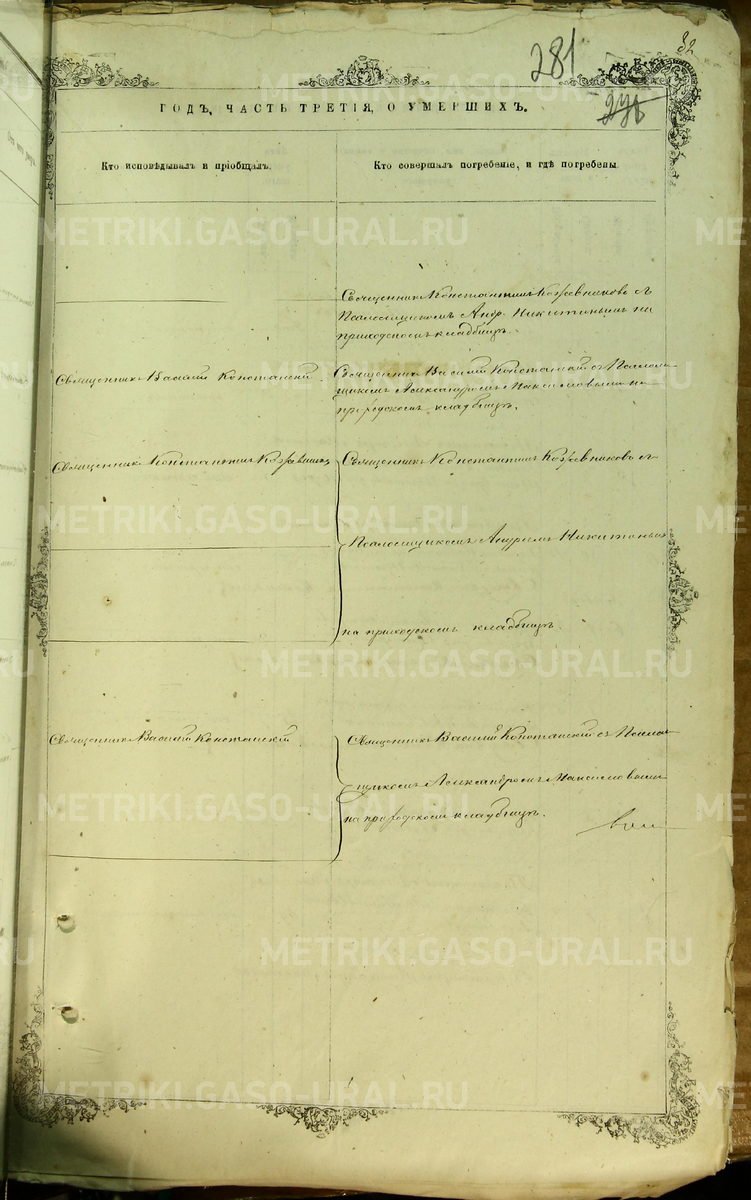 32
281
276
ГОДЪ, ЧАСТЬ ТРЕТІЯ, О УМЕРШИХЪ.
Кто исповѣдывалъ и пріобщалъ.
Кто совершалъ погребеніе, и гдѣ погребены.
Священникъ Константинъ Кожевниковъ съ
Псаломщикомъ Андр. Никитинымъ на
приходскомъ кладбищѣ.
Священникъ Василій Конотанскій.
Священникъ Василій Конотанскій съ Псалом
щикомъ Александромъ Максимовымъ на
приходскомъ кладбищѣ.
Священникъ Константинъ Кожевниковъ
Священникъ Константинъ Кожевниковъ съ
Псаломщикомъ Андреемъ Никитинымъ
на приходскомъ кладбищѣ.
Священникъ Василій Конотанскій
Священникъ Василій Конотанскій съ Псалом
щикомъ Александромъ Максимовымъ
на приходскомъ кладбищѣ.
METRIKI.GASO-URAL.RU